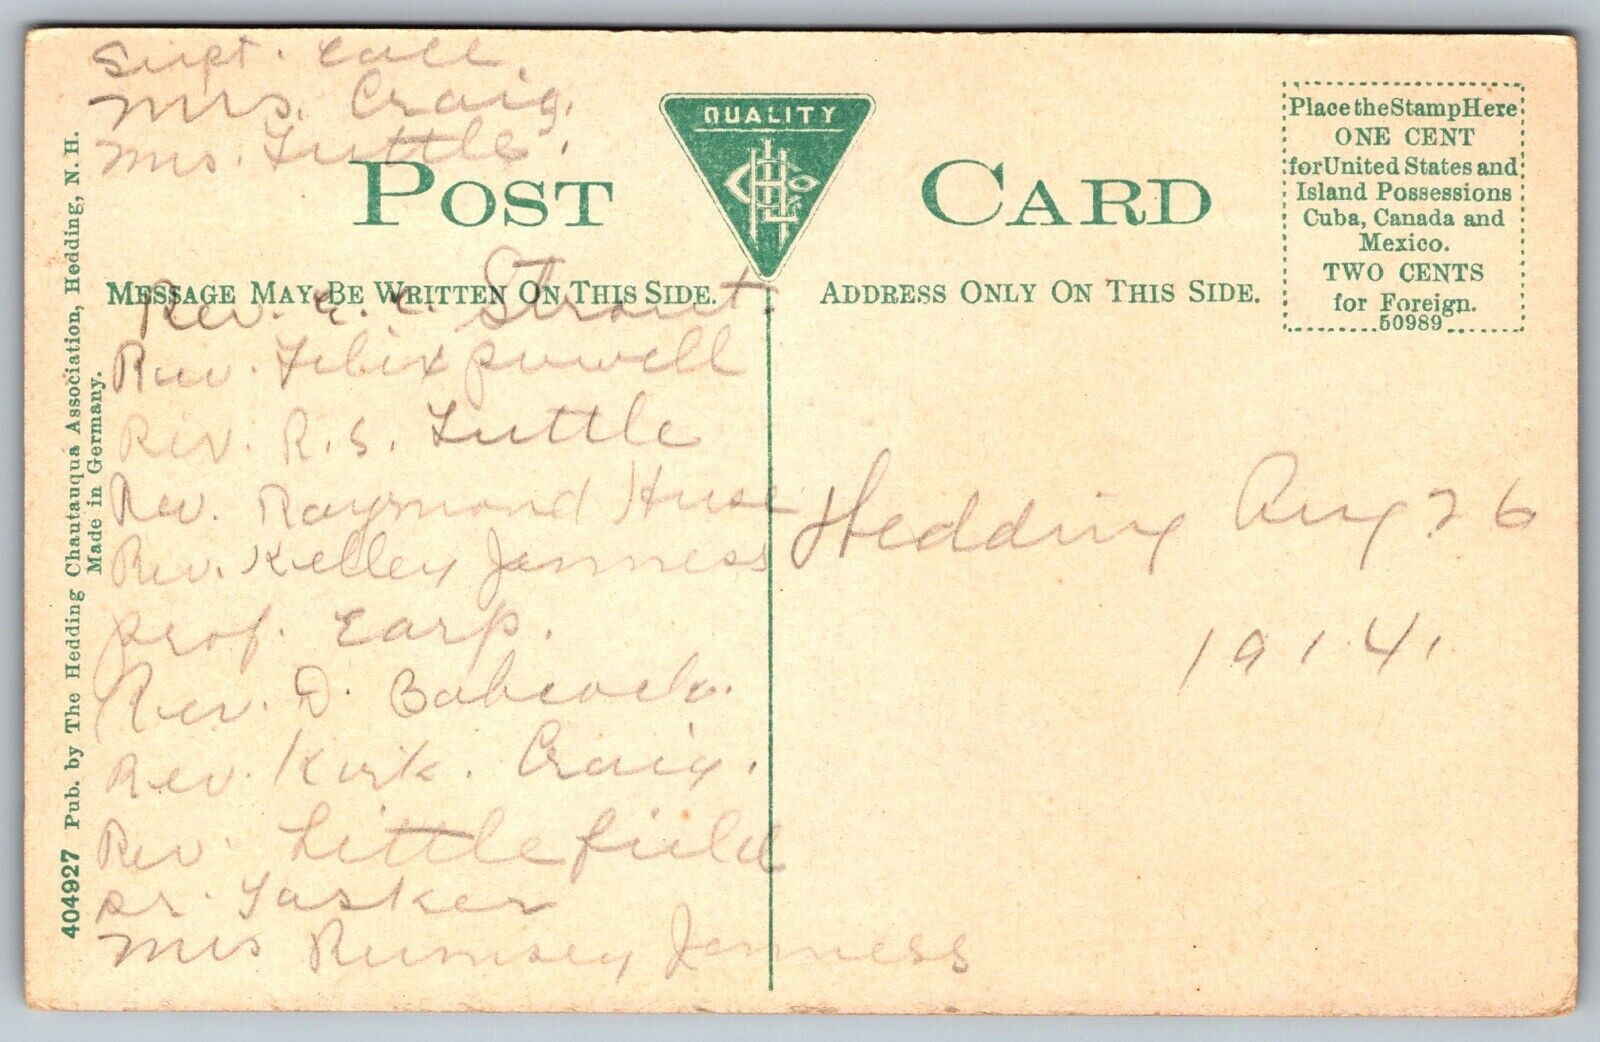 Supt. Call.
Mrs. Craig.
Mrs. Tuttle.
QUALITY
POST CARD
MESSAGE MAY BE WRITTEN ON THIS SIDE.
ADDRESS ONLY ON THIS SIDE.
Place the Stamp Here
ONE CENT
for United States and
Island Possessions
Cuba, Canada and
Mexico.
TWO CENTS
for Foreign.
50989
Rev. E. C. Strout.
Rev. Felix powell
Rev. R. S. Tuttle
Rev. Raymond Huse
Rev. Kelley Jenness
prof. Earp.
Rev. D. Babcock.
Rev. Kirk. Craig.
Rev. Littlefield
Dr. Tasker
Mrs Rumsey Jenness
Hedding Aug 26
1914.
404927 Pub. by The Hedding Chautauqua Association, Hedding, N. H.
Made in Germany.